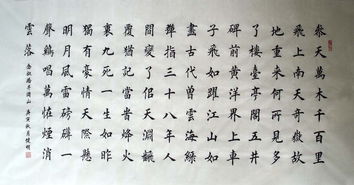 參天萬木千百里
飛上南天奇嶽故
地重來何所見多
了樓臺亭閣五井
碑前黃洋界上車
子飛如躍江山如
畫古代曾雲海綠
彈指三十八年人
間變了似天淵翻
覆猶記當時烽火
裏九死一生如昨
獨有豪情天際懸
明月風雷磅礴一
聲鷄唱萬怪煙消
雲落